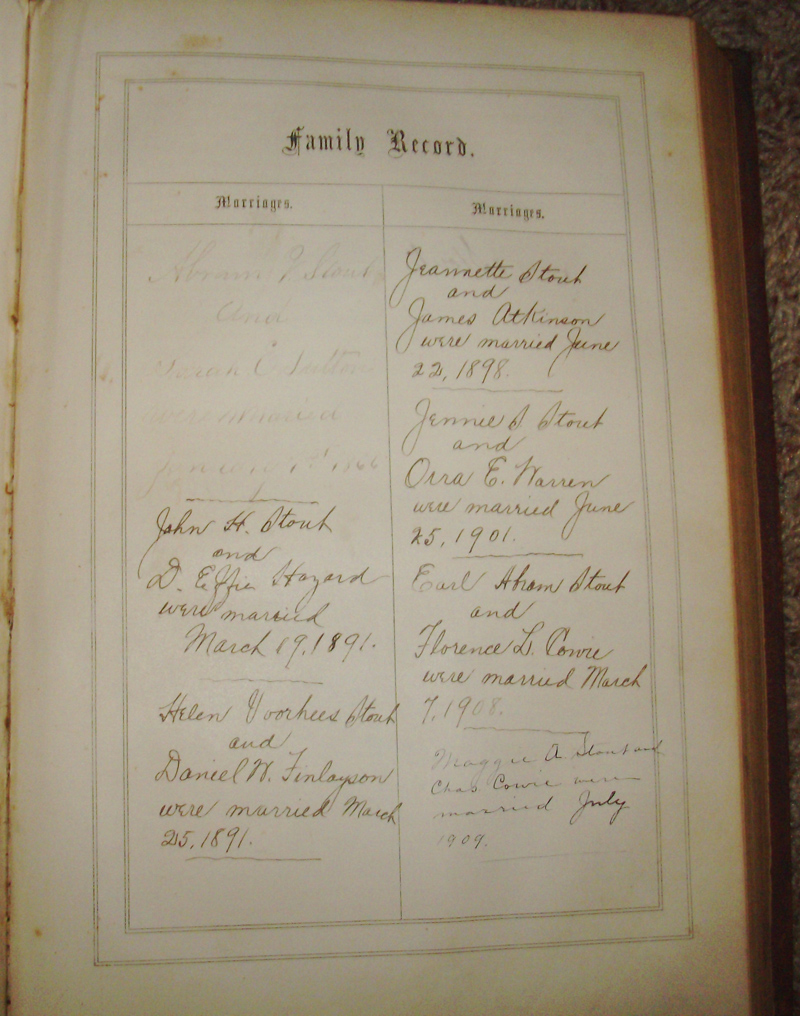 Family Record.
Marriages.
Abram Stout
and
Sarah E Sutton
were married
1st 1866
John H. Stout
and
D. Effie Hazard
were married
March 19, 1891.
Helen Voorhees Stout
and
Daniel W. Finlayson
were married March
25, 1891.
Marriages.
Jeannette Stout
and
James Atkinson
were married June
22, 1898.
Jennie S Stout
and
Orra E. Warren
were married June
25, 1901.
Earl Abram Stout
and
Florence L. Cowie
were married March
7, 1908.
Maggie A Stout and
Chas Cowie were
married July
1909.